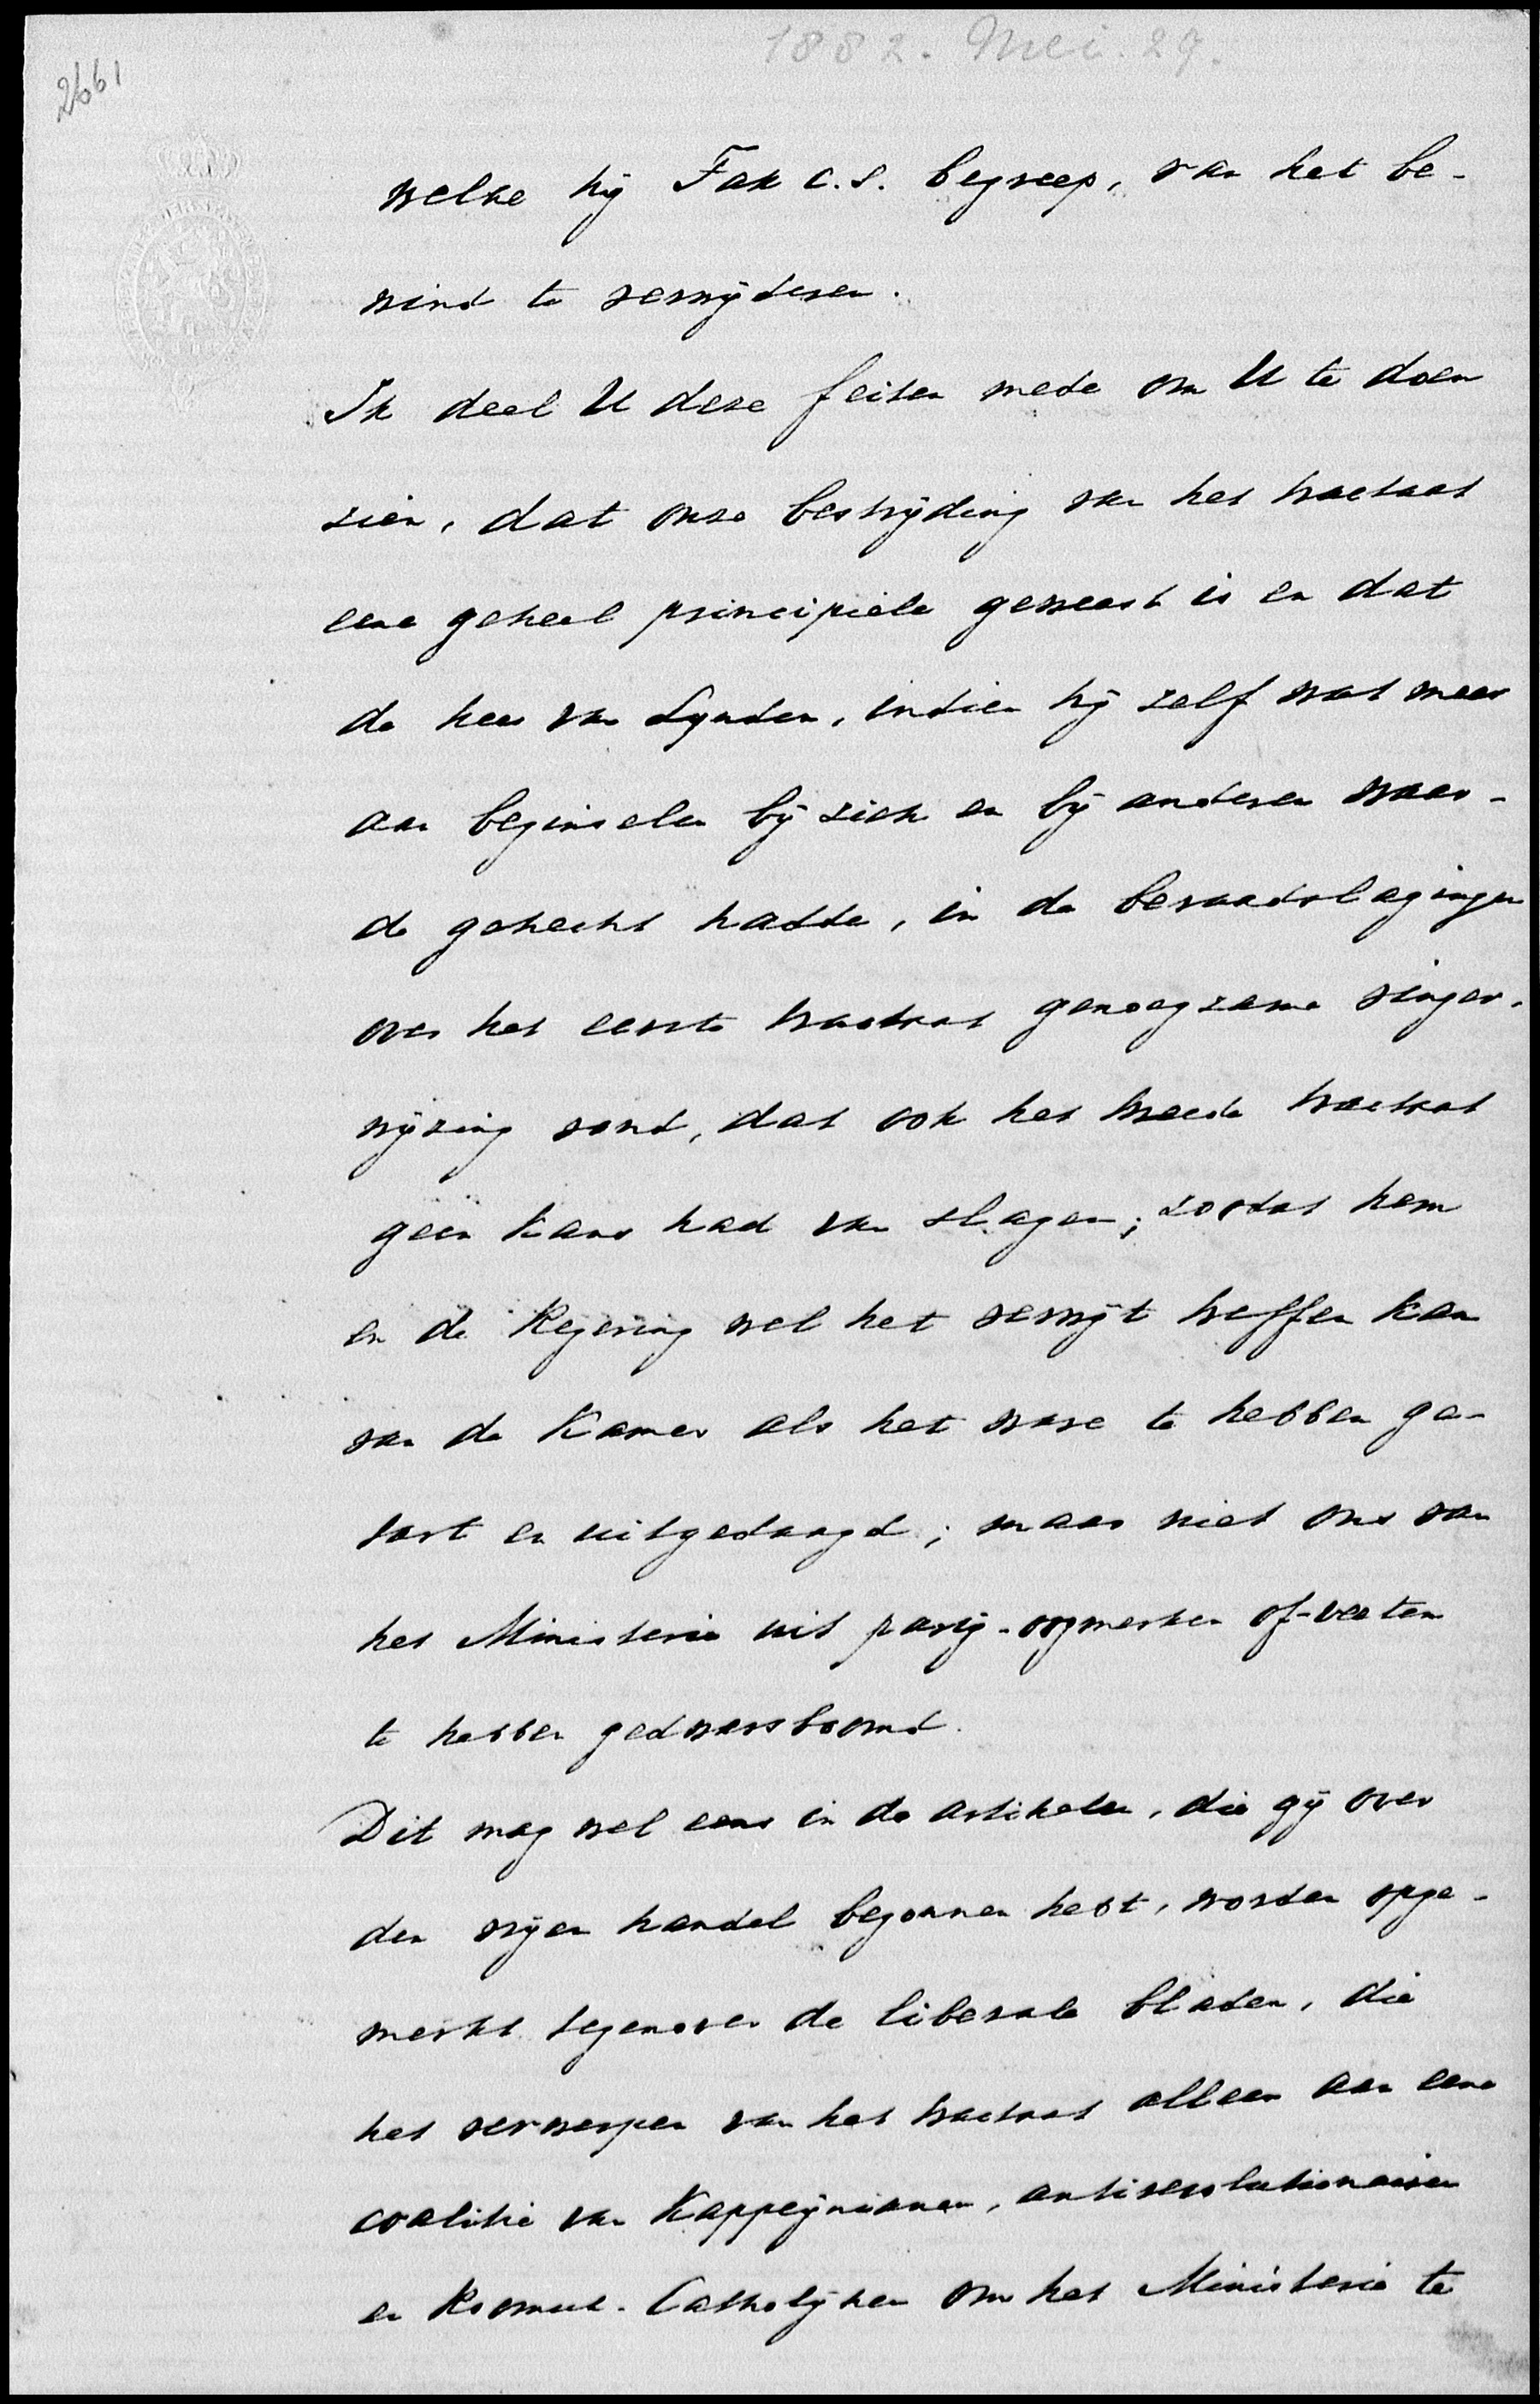 1882. Mei. 29.
2661
welke hij Fak c.s. begreep, van het be-
wind te verwijderen.
Ik deel U deze feiten mede om U te doen
zien, dat onze bestrijding van het tractaat
eene geheel principiele geweest is en dat
de heer van Lynden, indien hij zelf wat meer
aan beginselen bij zich en bij anderen waar-
de gehecht hadde, in de beraadslagingen
over het eerste tractaat genoegzame vinger-
wijzing vond, dat ook het tweede tractaat
geen kans had van slagen; zoodat hem
en de Regering wel het verwijt treffen kan
van de Kamer als het ware te hebben ge-
tart en uitgedaagd; maar niet ons van
het Ministerie uit partij-oogmerken of-veeten
te hebben gedwarsboomd.
Dit mag wel eens in de artikelen, die gij over
den vrijen handel begonnen hebt, worden opge-
merkt tegenover de liberale bladen, die
het verwerpen van het tractaat alleen aan eene
coalitie van Kappeynianen, antirevolutionairen
en Roomsch-Catholijken om het Ministerie te